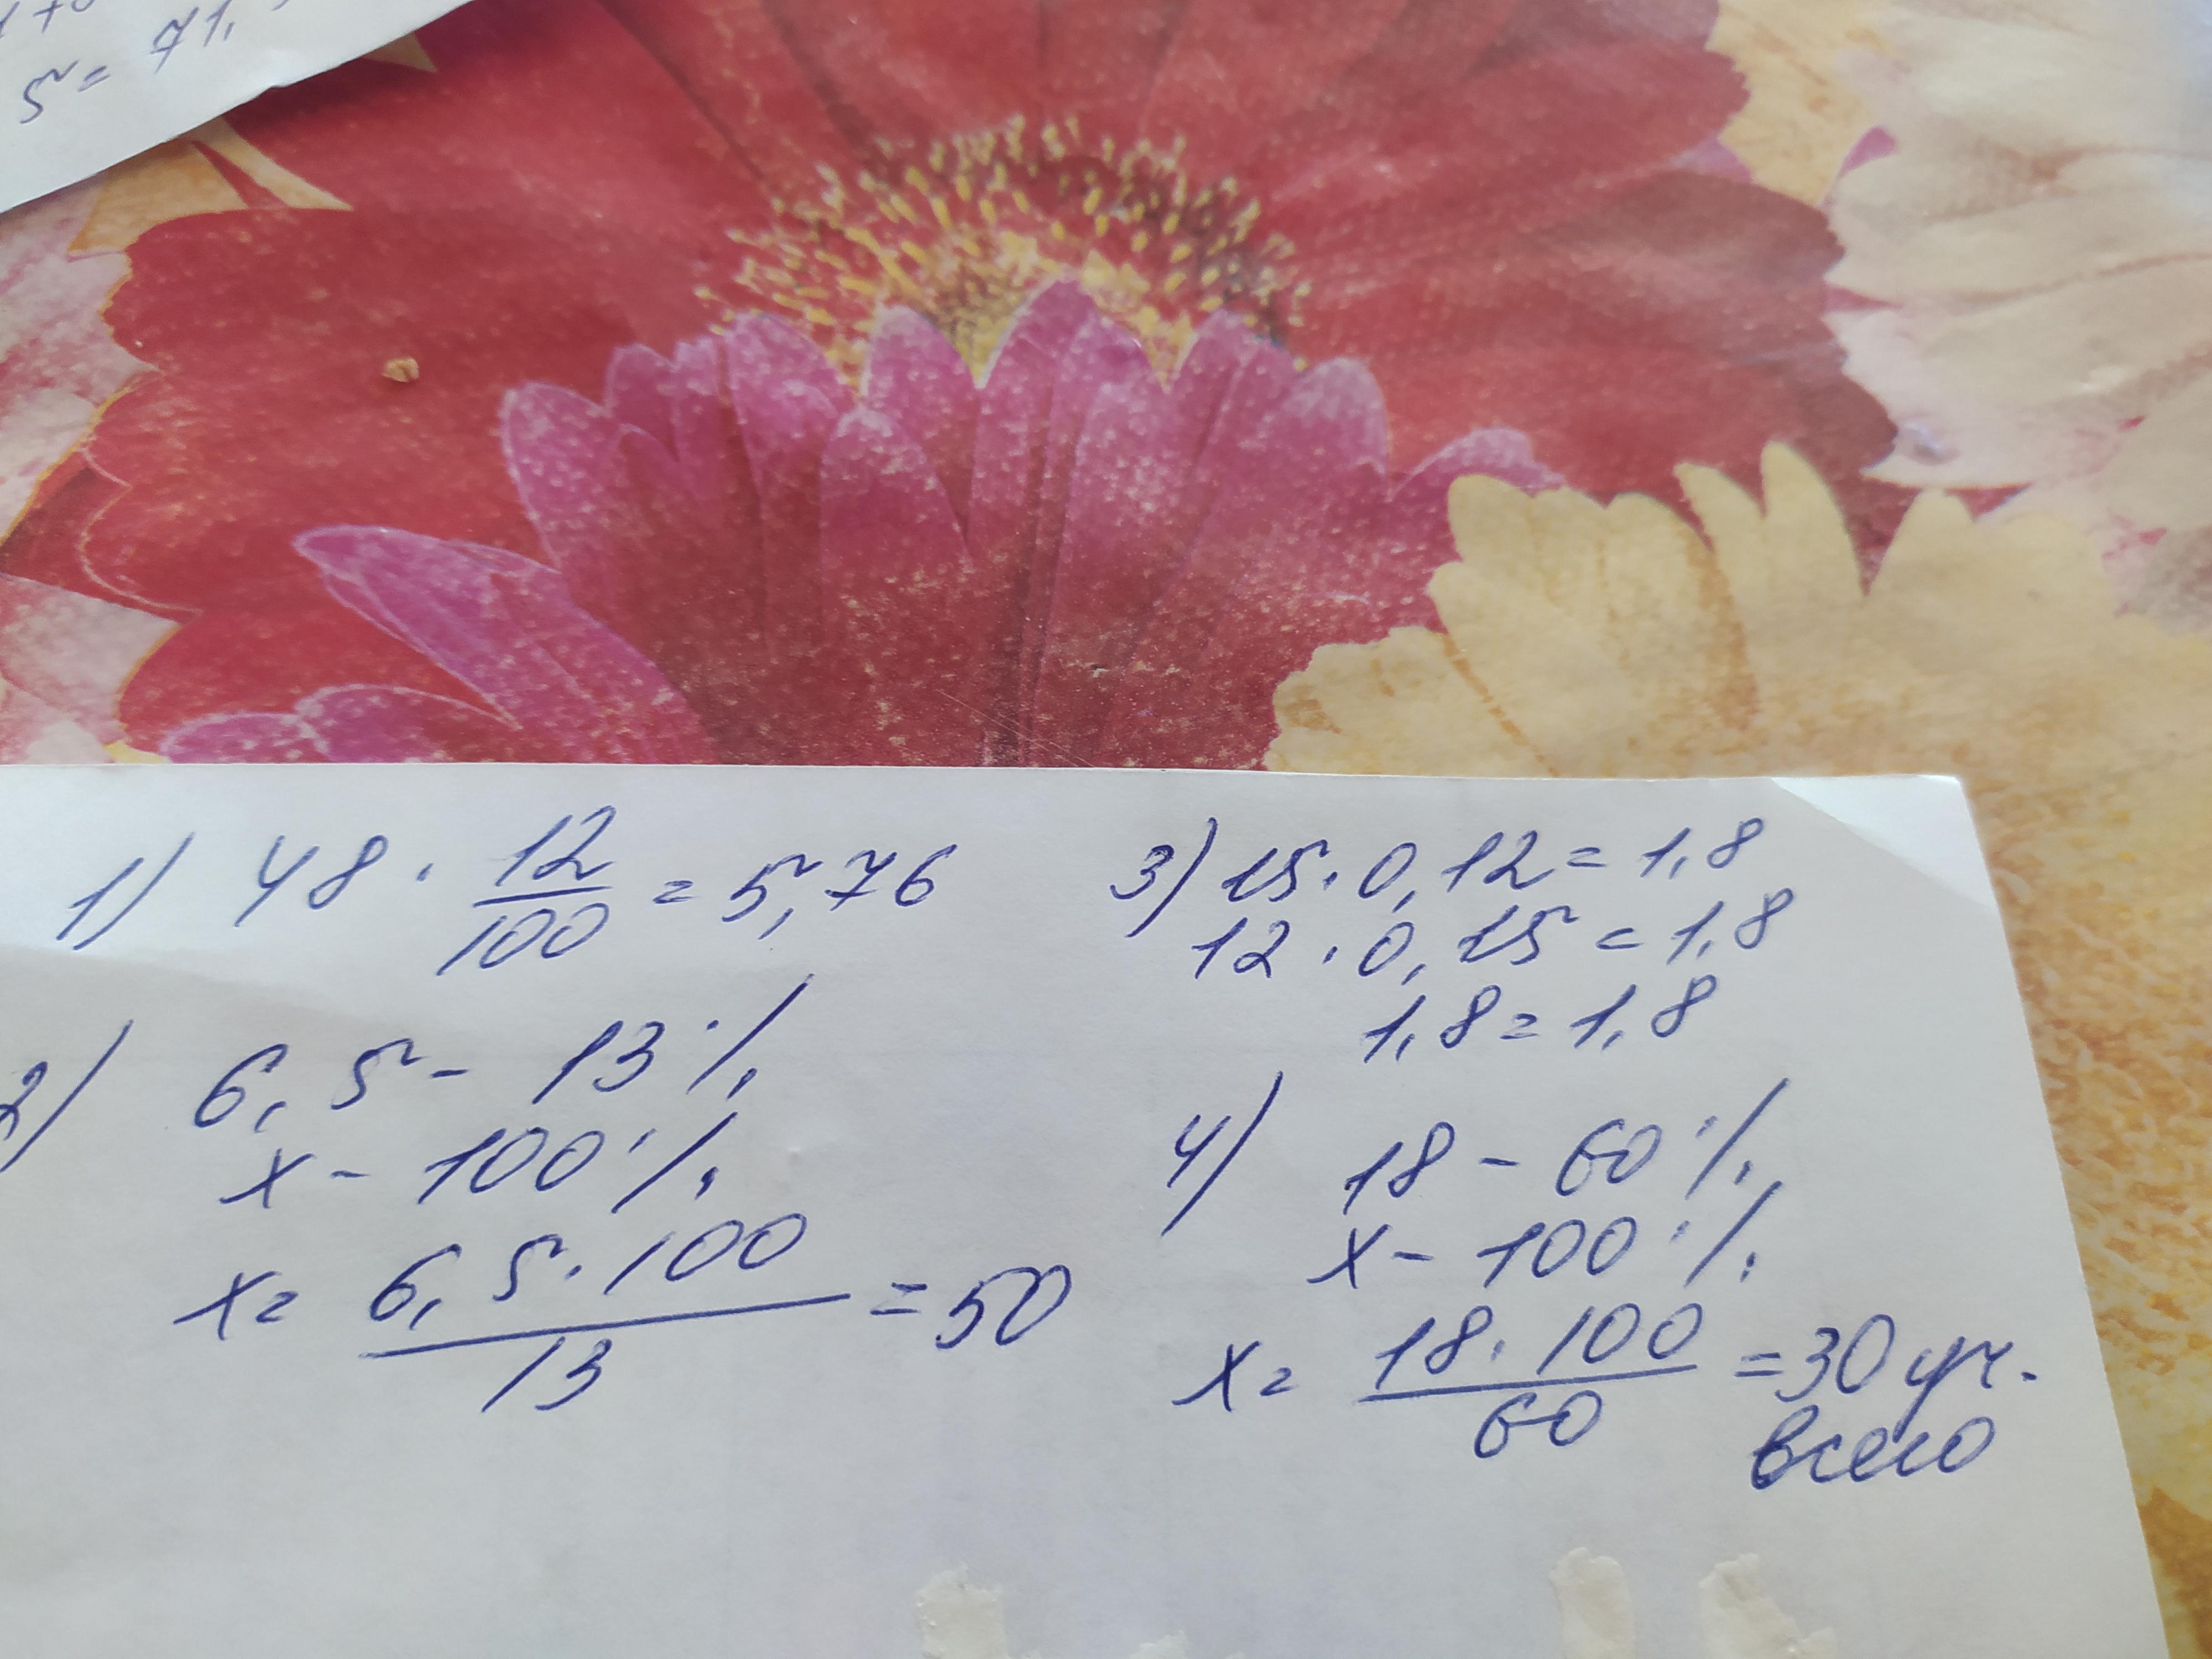 5 = 71,
1) 48 · 12/100 = 5,76
2) 6,5 - 13%
x - 100%
x = 6,5 · 100/13 = 50
3) 15 · 0,12 = 1,8
12 · 0,15 = 1,8
1,8 = 1,8
4) 18 - 60%
x - 100%
x = 18 · 100/60 = 30 уч.
всего